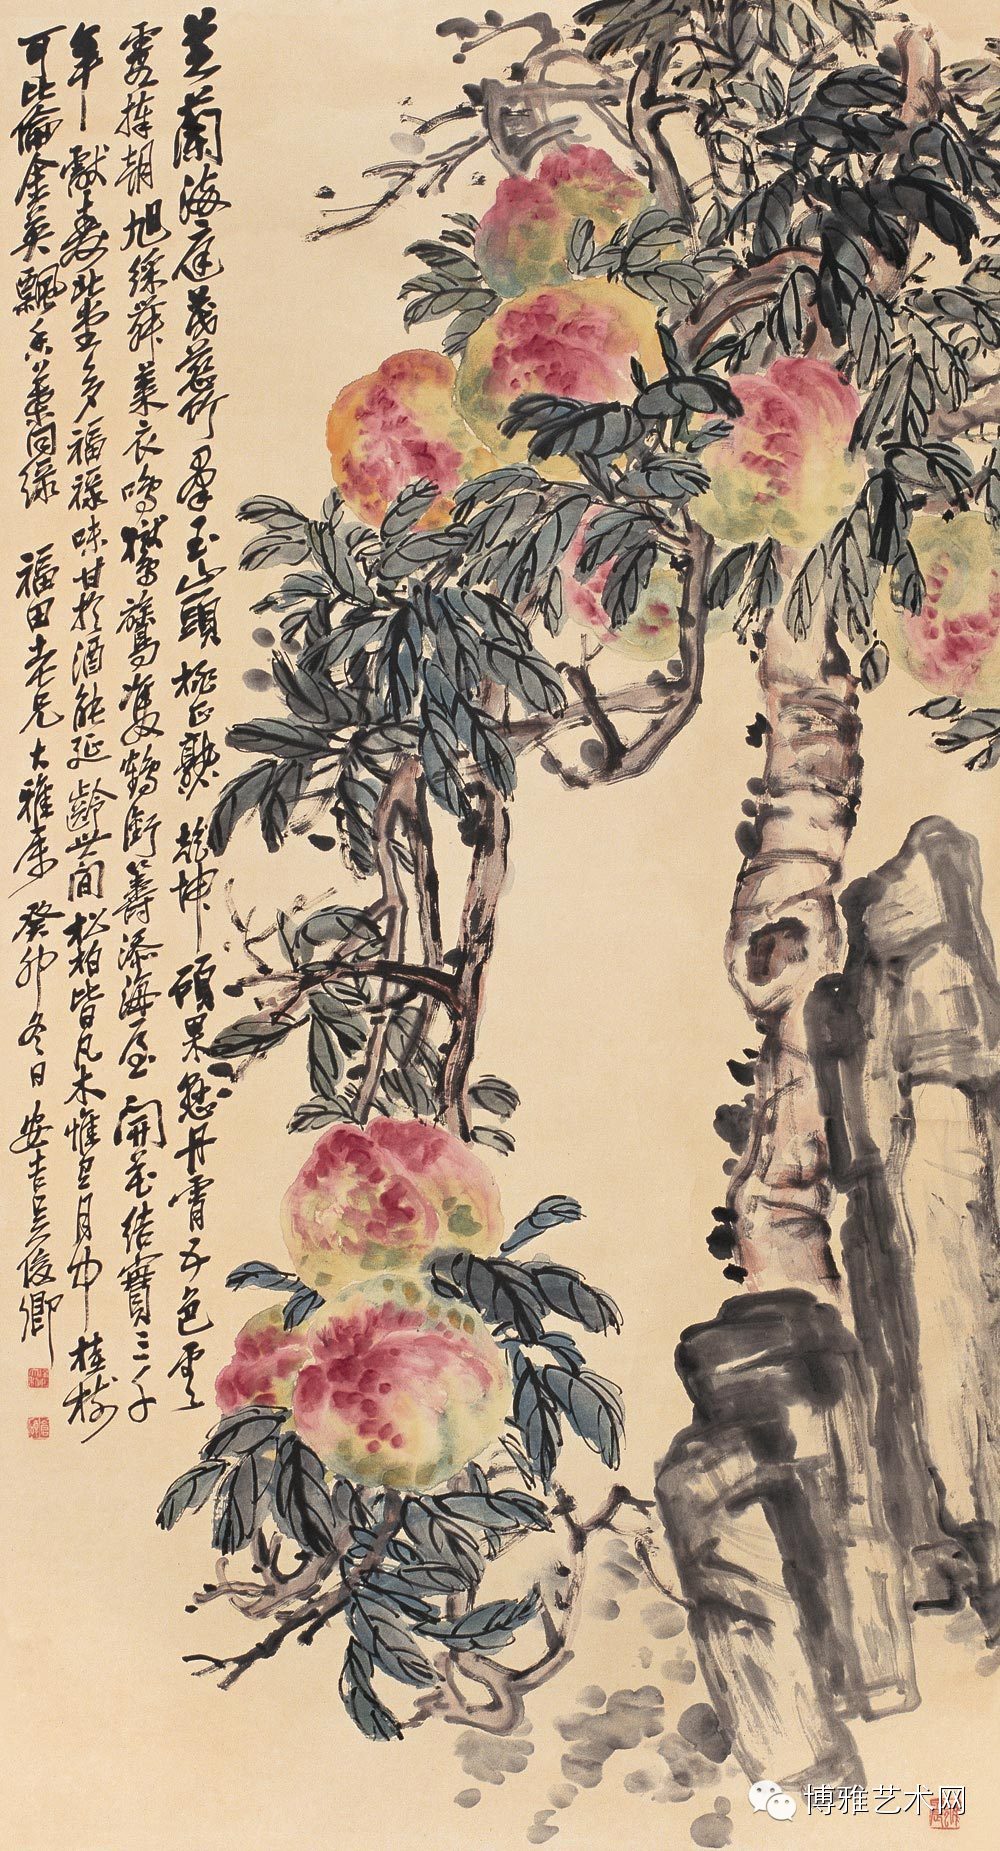 芝蘭海庭茂慈竹羣玉山頭桃正熟乾坤碩果懸丹霄五色雲
霞捧朝旭綵舞萊衣鳴鸑鷟雙鶴銜籌添海屋開花結實三千
年獻壽北堂多福祿味甘於酒能延齡世間松柏皆凡木惟有月中桂樹
可比倫金英飄香葉同綠 福田老兄大雅屬 癸卯冬日安吉吳俊卿
博雅艺术网